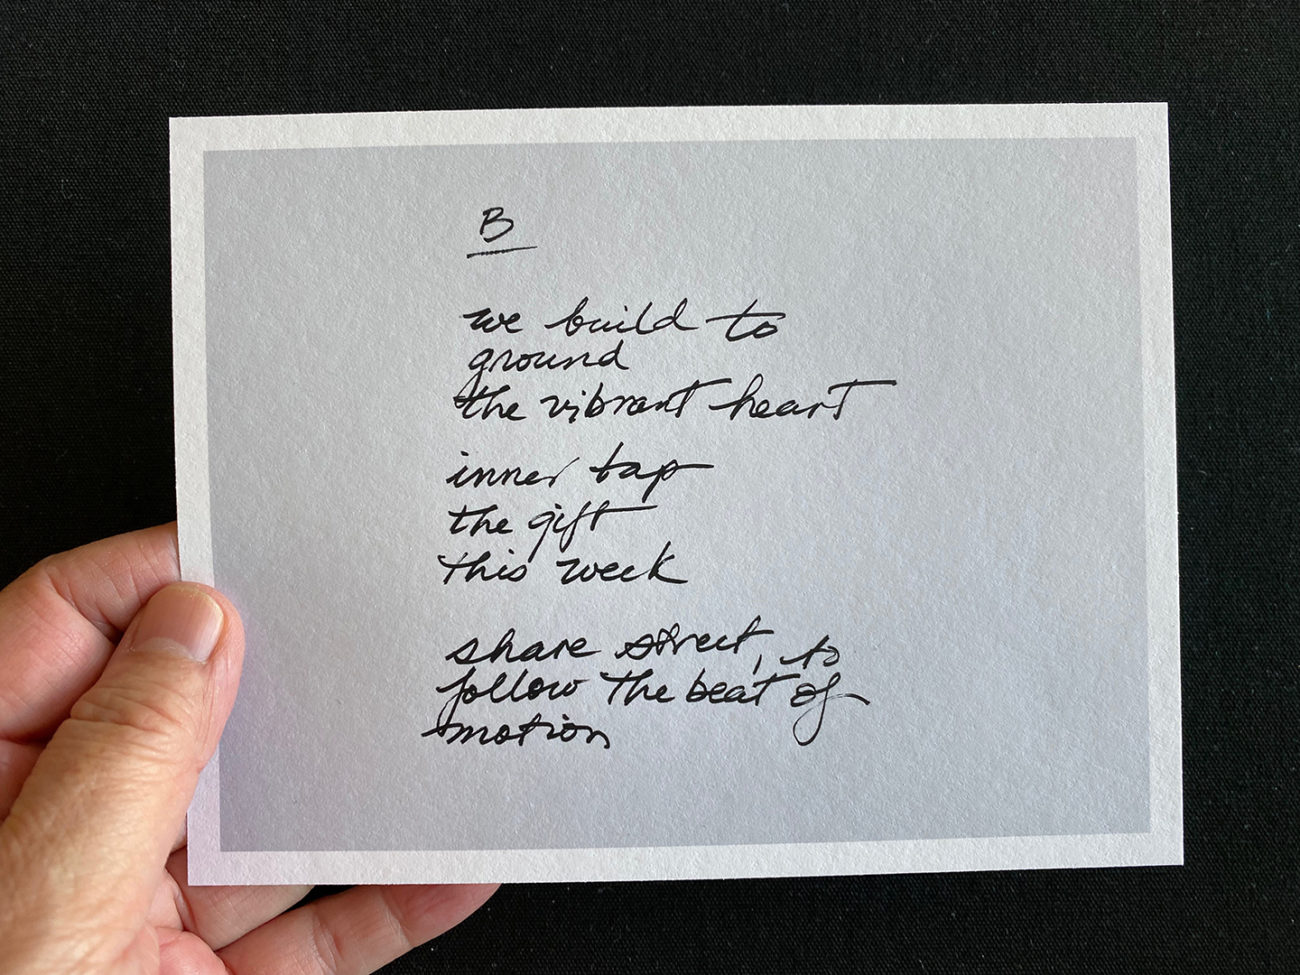 B
we build to
ground
the vibrant heart
inner tap
the gift
this week
share street, to
follow the beat of
motion